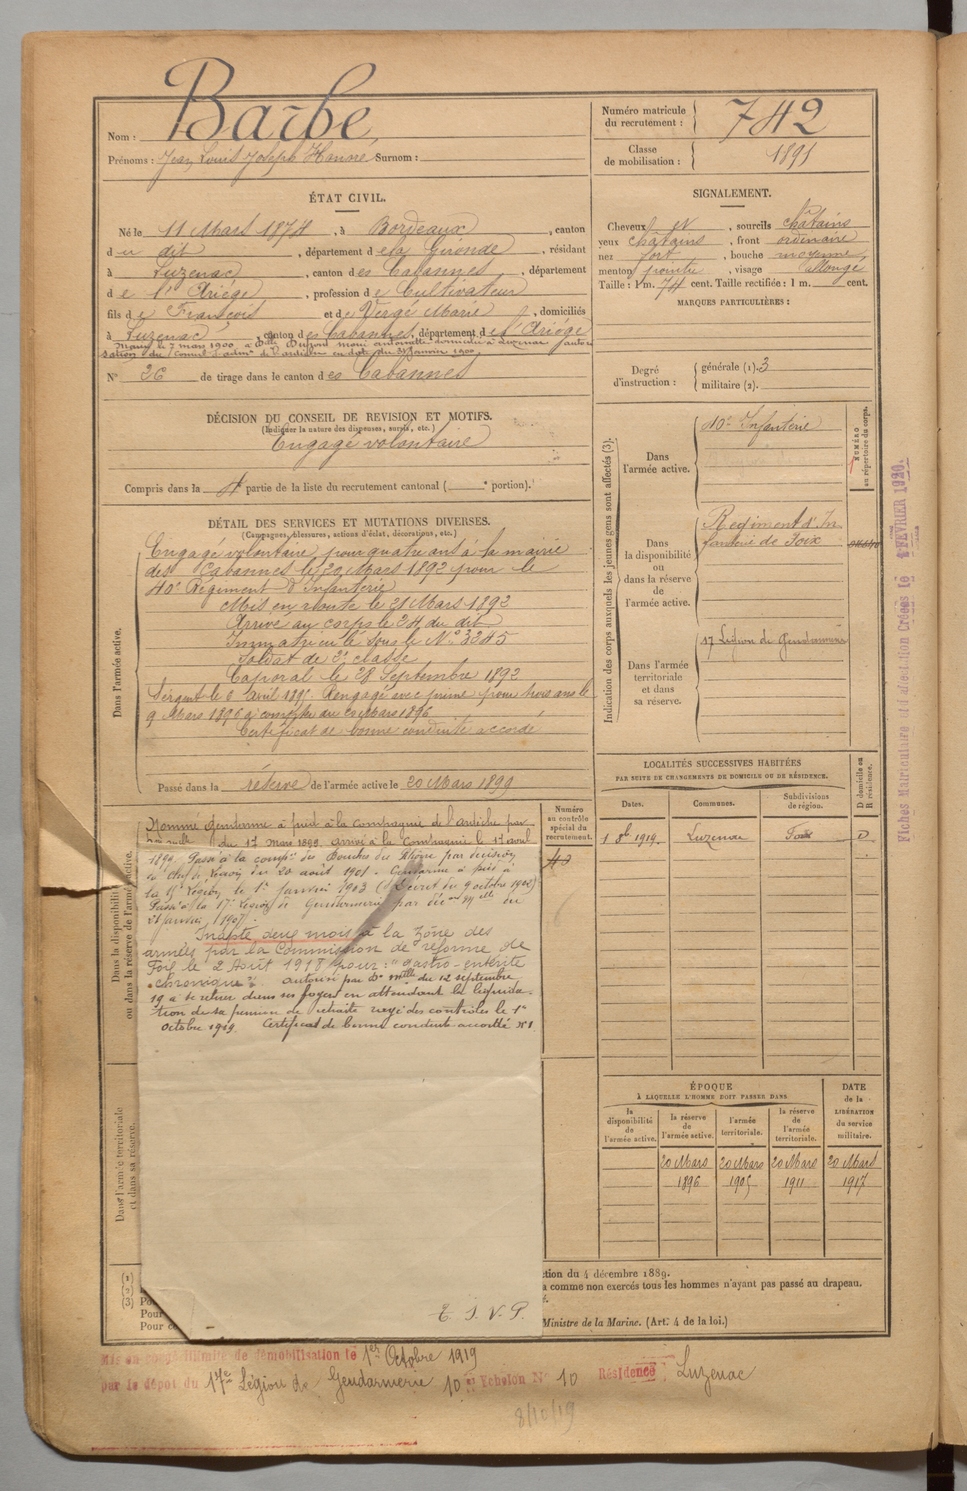 Nom : Barbe,
Prénoms : Jean Louis Joseph Surnom :
Numéro matricule du recrutement : 742
Classe de mobilisation : 1895
ÉTAT CIVIL.
Né le 11 Mars 1874, à Bordeaux, canton
du dit, département de la Gironde, résidant
à Luzenac, canton des Cabannes, département
de l'Ariège, profession de Cultivateur
fils de François et de Vergé Marie, domiciliés
à Luzenac, canton des Cabannes, département de l'Ariège
Marié le 7 mars 1900 à Dlle Dupont domiciliée à Luzenac
N° 26 de tirage dans le canton des Cabannes
SIGNALEMENT.
Cheveux, sourcils châtains
yeux châtains, front ordinaire
nez fort, bouche moyenne
menton pointu, visage allongé
Taille : 1 m. 74 cent. Taille rectifiée : 1 m. cent.
MARQUES PARTICULIÈRES :
Degré d'instruction : générale (1). 3
militaire (2).
DÉCISION DU CONSEIL DE REVISION ET MOTIFS.
(Indiquer la nature des dispenses, sursis, etc.)
Engagé volontaire
Compris dans la 4e partie de la liste du recrutement cantonal ( e portion).
DÉTAIL DES SERVICES ET MUTATIONS DIVERSES.
(Campagnes, blessures, actions d'éclat, décorations, etc.)
Dans l'armée active.
Engagé volontaire pour quatre ans à la mairie
des Cabannes le 20 Mars 1892 pour le
40e Régiment d'Infanterie
Mis en route le 21 Mars 1892
Arrivé au corps le 24 du dit
Immatriculé sous le N° 3245
Soldat de 2e classe
Caporal le 28 Septembre 1892
Sergent le 6 Avril 1895. Rengagé avec prime pour trois ans le
9 Mars 1896 à compter du 20 Mars 1896
Certificat de bonne conduite accordé
Passé dans la réserve de l'armée active le 20 Mars 1899
Indication des corps auxquels les jeunes gens sont affectés (3).
Dans l'armée active.
40e Infanterie
NUMÉRO au répertoire du corps.
Dans la disponibilité ou dans la réserve de l'armée active.
Régiment d'In
fanterie de Foix
Dans l'armée territoriale et dans sa réserve.
17 Légion de Gendarmerie
Dans la disponibilité ou dans la réserve de l'armée active.
Nommé Gendarme à pied à la Compagnie de l'Ardèche par
du 17 mars 1899 arrivé à la Compagnie le 17 avril
1899. Passé à la compie des Bouches du Rhône par décision
du Chef de Légion du 20 août 1901. Gendarme à pied à
la 15e Légion le 1er janvier 1903 (Décret du 9 octobre 1902)
Passé à la 17e Légion de Gendarmerie par du
21 janvier 1907.
Inapte deux mois à la Zône des
armées par la Commission de réforme de
Foix le 2 Août 1918 pour : "gastro-entérite
chronique". Autorisé par Don mlle du 12 septembre
19 à se retirer dans ses foyers en attendant la liquida-
tion de sa pension de retraite rayé des contrôles le 1er
Octobre 1919. Certificat de bonne conduite accordé N° 1
T. S. V. P.
Numéro au contrôle spécial du recrutement.
LOCALITÉS SUCCESSIVES HABITÉES
PAR SUITE DE CHANGEMENTS DE DOMICILE OU DE RÉSIDENCE.
Dates. Communes. Subdivisions de région. D domicile ou R résidence.
1 8bre 1919. Luzenac Foix D
Dans l'armée territoriale et dans sa réserve.
ÉPOQUE
À LAQUELLE L'HOMME DOIT PASSER DANS
DATE de la LIBÉRATION du service militaire.
la disponibilité de l'armée active.
la réserve de l'armée active.
l'armée territoriale.
la réserve de l'armée territoriale.
20 Mars 20 Mars 20 Mars 20 Mars
1896 1905 1911 1917
(1)
(2)
(3) Po
Pour
Pour c
ction du 4 décembre 1889.
a comme non exercés tous les hommes n'ayant pas passé au drapeau.
Ministre de la Marine. (Art. 4 de la loi.)
Fiches Matriculaire et d'affectation Créées le FÉVRIER 1920.
Mis en congé illimité de démobilisation le 1er Octobre 1919
par le dépôt du 17e Légion de Gendarmerie 10e Echelon N° 10 Résidence Luzenac
8/10/19